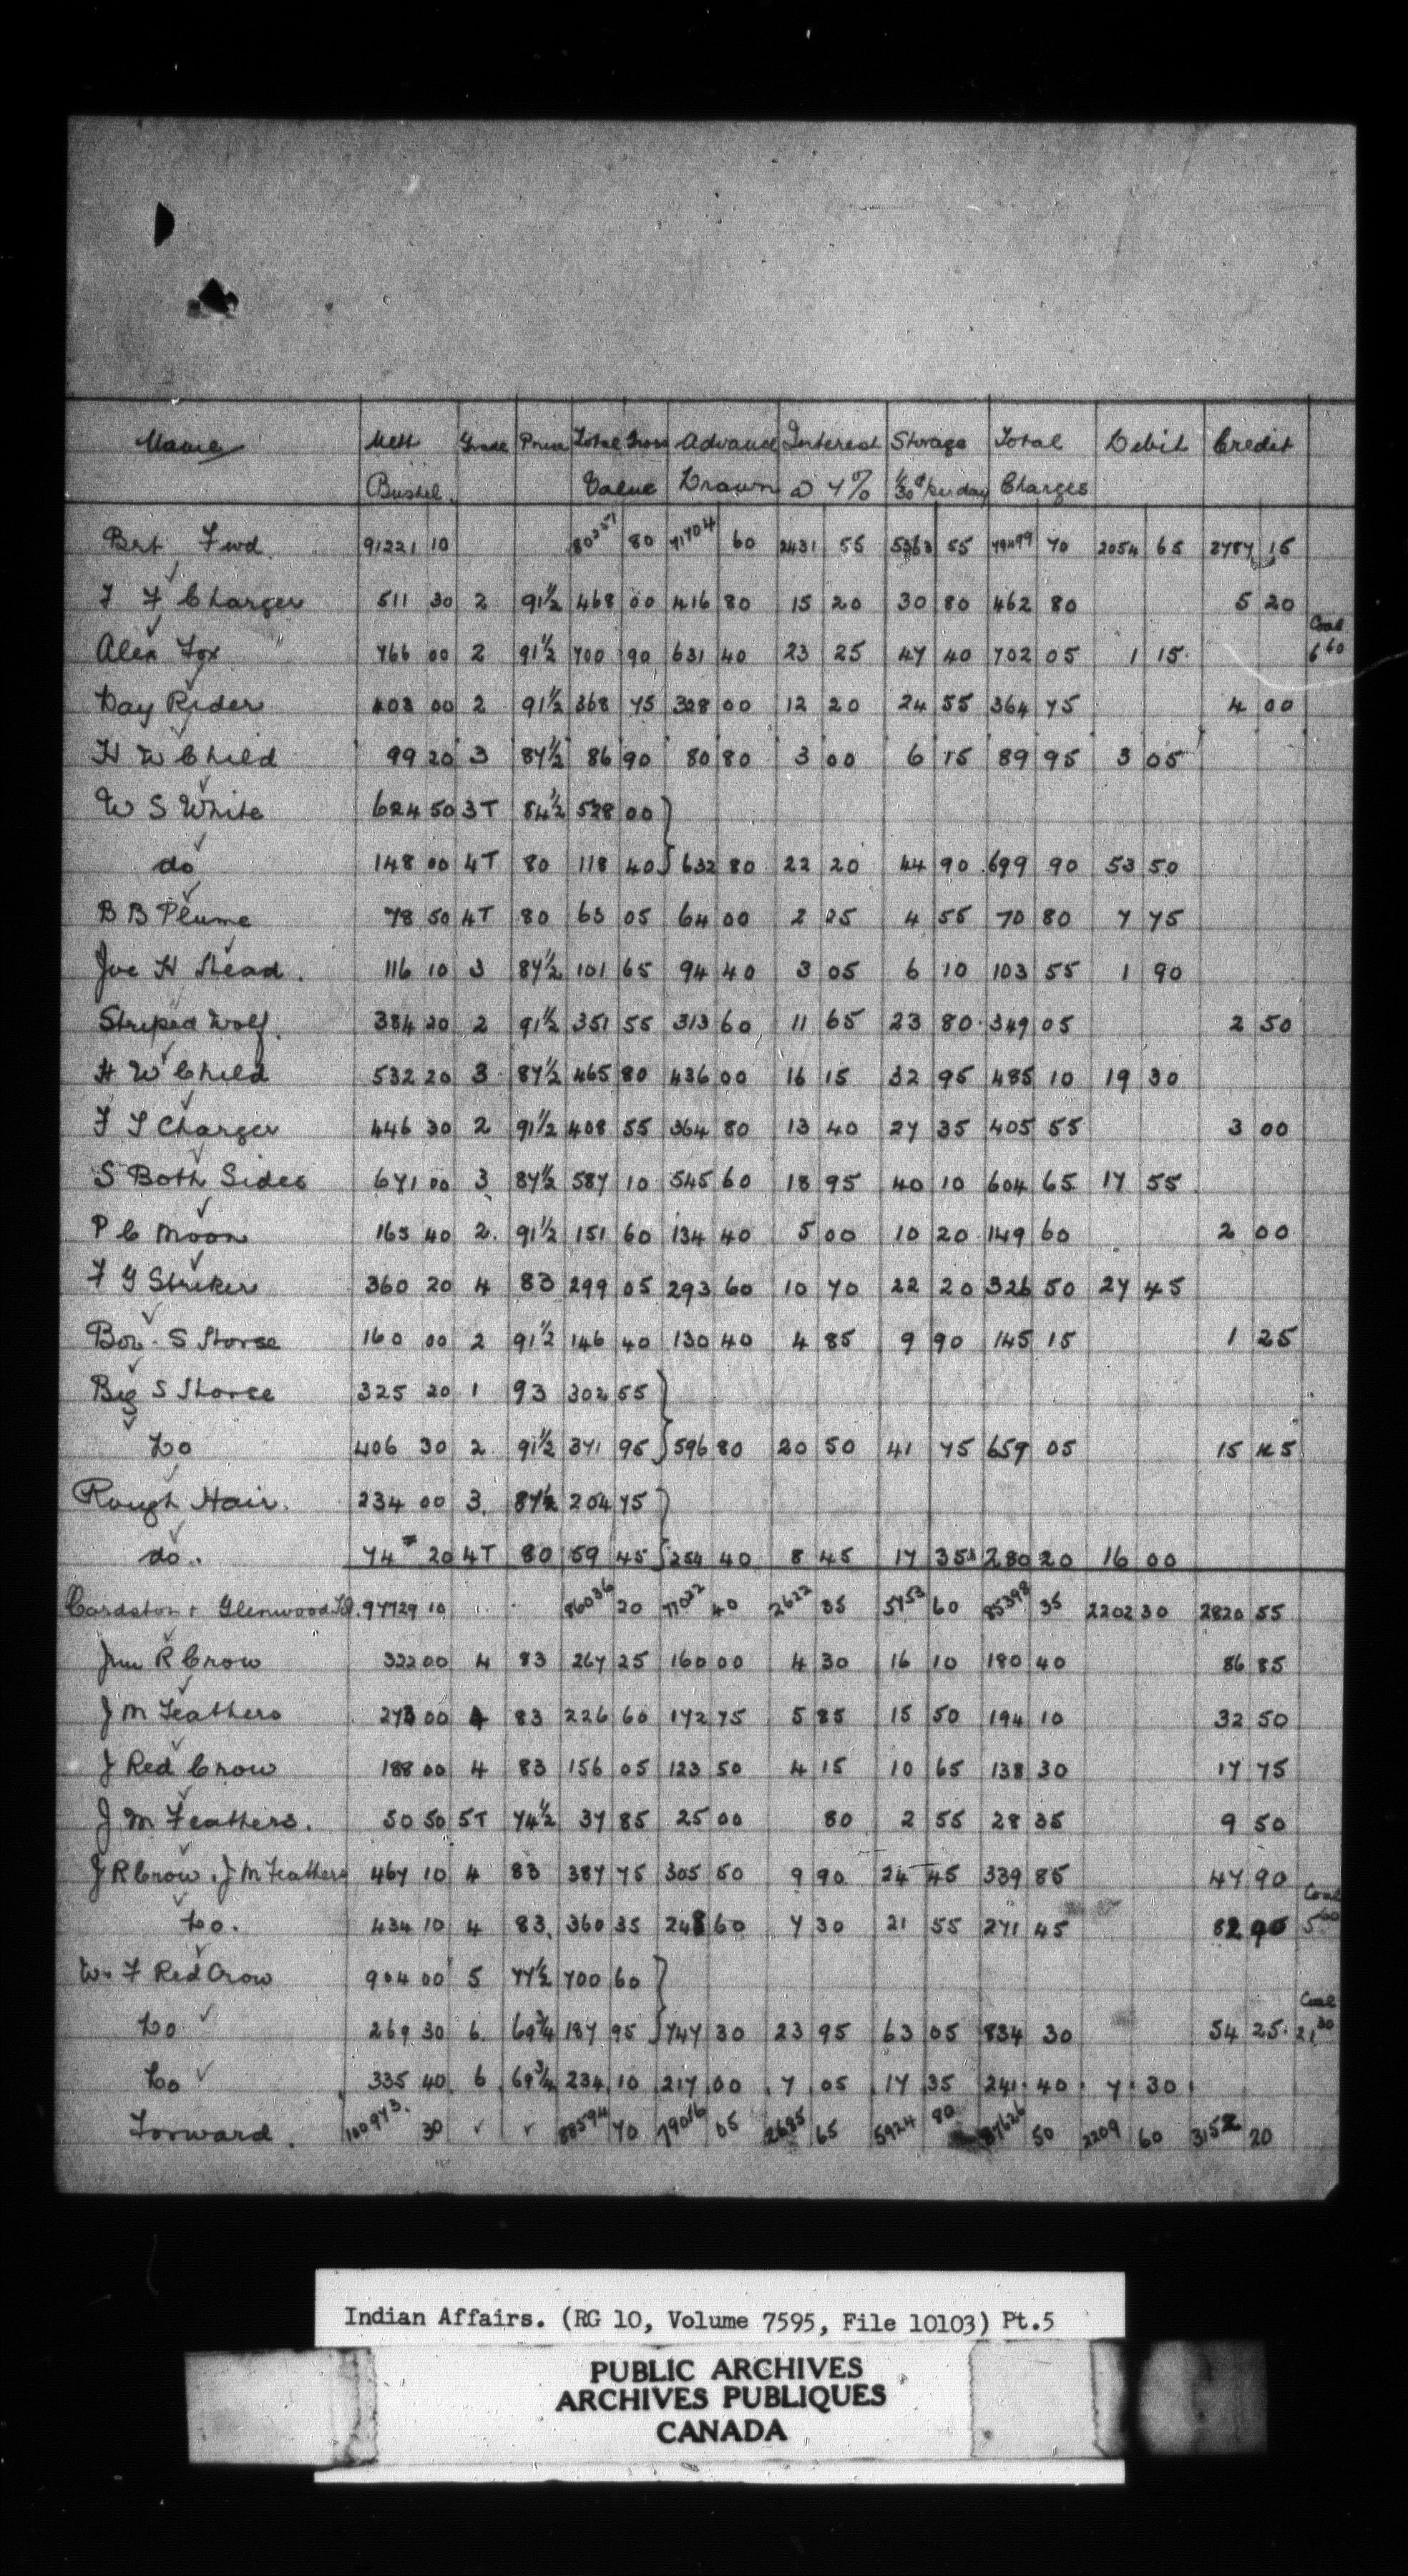 Name Nett Grade Price Total Gross Advance Interest Storage Total Debit Credit
Bushel. Value Drawn @ 7% 1/30¢ per day Charges
Brt Fwd. 91221 10 80357 80 71704 60 2431 55 5363 55 79499 70 2054 65 2787 15
F F Charger 511 30 2 91½ 468 00 416 80 15 20 30 80 462 80 5 20
Alex Fox 766 00 2 91½ 700 90 631 40 23 25 47 40 702 05 1 15 Coal 6 60
Day Rider 403 00 2 91½ 368 75 328 00 12 20 24 55 364 75 4 00
H W Child 99 20 3 87½ 86 90 80 80 3 00 6 15 89 95 3 05
W S White 624 50 3T 84½ 528 00
do 148 00 4T 80 118 40 632 80 22 20 44 90 699 90 53 50
B B Plume 78 50 4T 80 63 05 64 00 2 25 4 55 70 80 7 75
Joe H Head. 116 10 3 87½ 101 65 94 40 3 05 6 10 103 55 1 90
Striped Wolf. 384 20 2 91½ 351 55 313 60 11 65 23 80 349 05 2 50
H W Child 532 20 3 87½ 465 80 436 00 16 15 32 95 485 10 19 30
F F Charger 446 30 2 91½ 408 55 364 80 13 40 27 35 405 55 3 00
S Both Sides 671 00 3 87½ 587 10 545 60 18 95 40 10 604 65 17 55
P C Moon 165 40 2. 91½ 151 60 134 40 5 00 10 20 149 60 2 00
F G Striker 360 20 4 83 299 05 293 60 10 70 22 20 326 50 27 45
Boy. S Horse 160 00 2 91½ 146 40 130 40 4 85 9 90 145 15 1 25
Big S Horse 325 20 1 93 302 55
Do 406 30 2 91½ 371 95 596 80 20 50 41 75 659 05 15 45
Rough Hair. 234 00 3. 87½ 204 75
do. 74 20 4T 80 59 45 254 40 8 45 17 35 280 20 16 00
Cardston & Glenwood Tl. 97729 10 86036 20 77022 40 2622 35 5753 60 85398 35 2202 30 2820 55
Jim R Crow 322 00 4 83 267 25 160 00 4 30 16 10 180 40 86 85
J M Feathers 273 00 4 83 226 60 172 75 5 85 15 50 194 10 32 50
J Red Crow 188 00 4 83 156 05 123 50 4 15 10 65 138 30 17 75
J M Feathers. 50 50 5T 74½ 37 85 25 00 80 2 55 28 35 9 50
J R Crow. J M Feathers 467 10 4 83 387 75 305 50 9 90 24 45 339 85 47 90
Do. 434 10 4 83. 360 35 242 60 7 30 21 55 271 45 Coal
W. F Red Crow 904 00 5 77½ 700 60
Do 269 30 6. 69¾ 187 95 747 30 23 95 63 05 834 30 54 25 Coal 21 30
Do 335 40 6 69¾ 234 10 217 00 7 05 17 35 241 40 7 30
Forward. 100973. 30 88594 70 79016 05 2685 65 5924 80 87626 50 2209 60 3152 20
Indian Affairs. (RG 10, Volume 7595, File 10103) Pt.5
PUBLIC ARCHIVES
ARCHIVES PUBLIQUES
CANADA